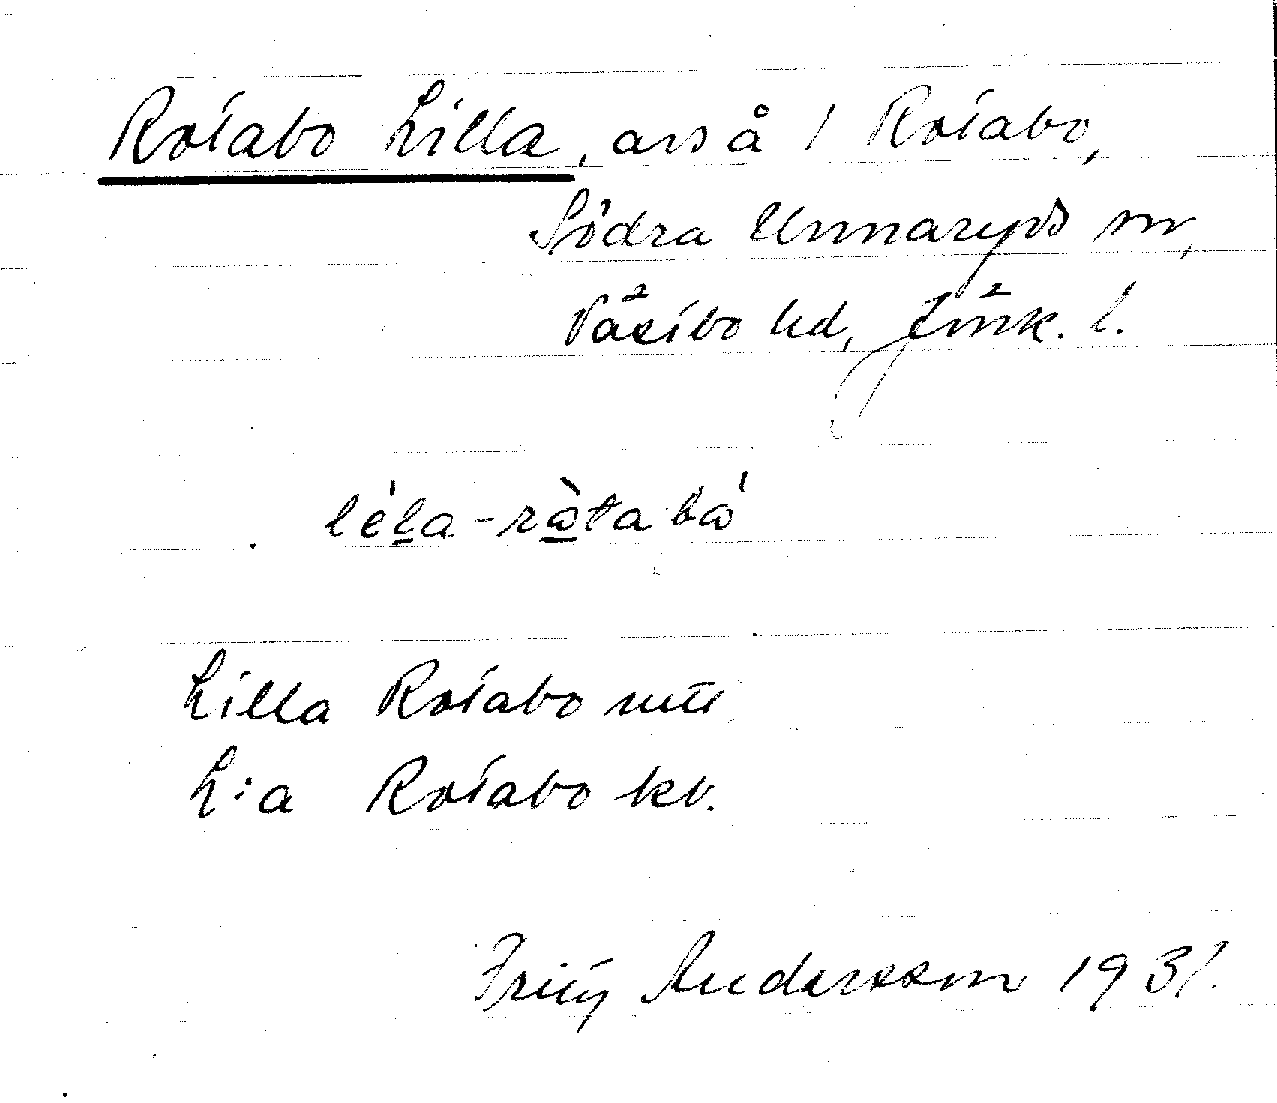 Rotabo Lilla, avs å 1 Rotabo,
Södra Unnaryds sn,
Västbo hd, Jönk. l.
lèla-ràtabå
Lilla Rotabo mtl
L:a Rotabo kb.
Fritz Andersson 1931.